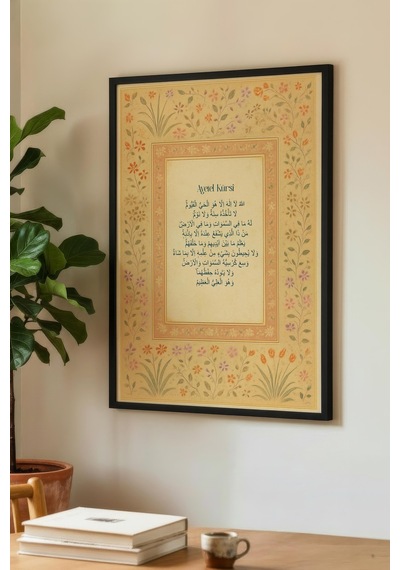 Ayetel Kürsi
الله لَا إِلَٰهَ إِلَّا هُوَ الْحَيُّ الْقَيُّومُ
لَا تَأْخُذُهُ سِنَةٌ وَلَا نَوْمٌ
لَهُ مَا فِي السَّمٰوَاتِ وَمَا فِي الْاَرْضِ
مَنْ ذَا الَّذِي يَشْفَعُ عِنْدَهُ اِلَّا بِاِذْنِهِ
يَعْلَمُ مَا بَيْنَ اَيْدِيهِمْ وَمَا خَلْفَهُمْ
وَلَا يُحِيطُونَ بِشَيْءٍ مِنْ عِلْمِهِ اِلَّا بِمَا شَاءَ
وَسِعَ كُرْسِيُّهُ السَّمٰوَاتِ وَالْاَرْضَ
وَلَا يَئُودُهُ حِفْظُهُمَا
وَهُوَ الْعَلِيُّ الْعَظِيمُ